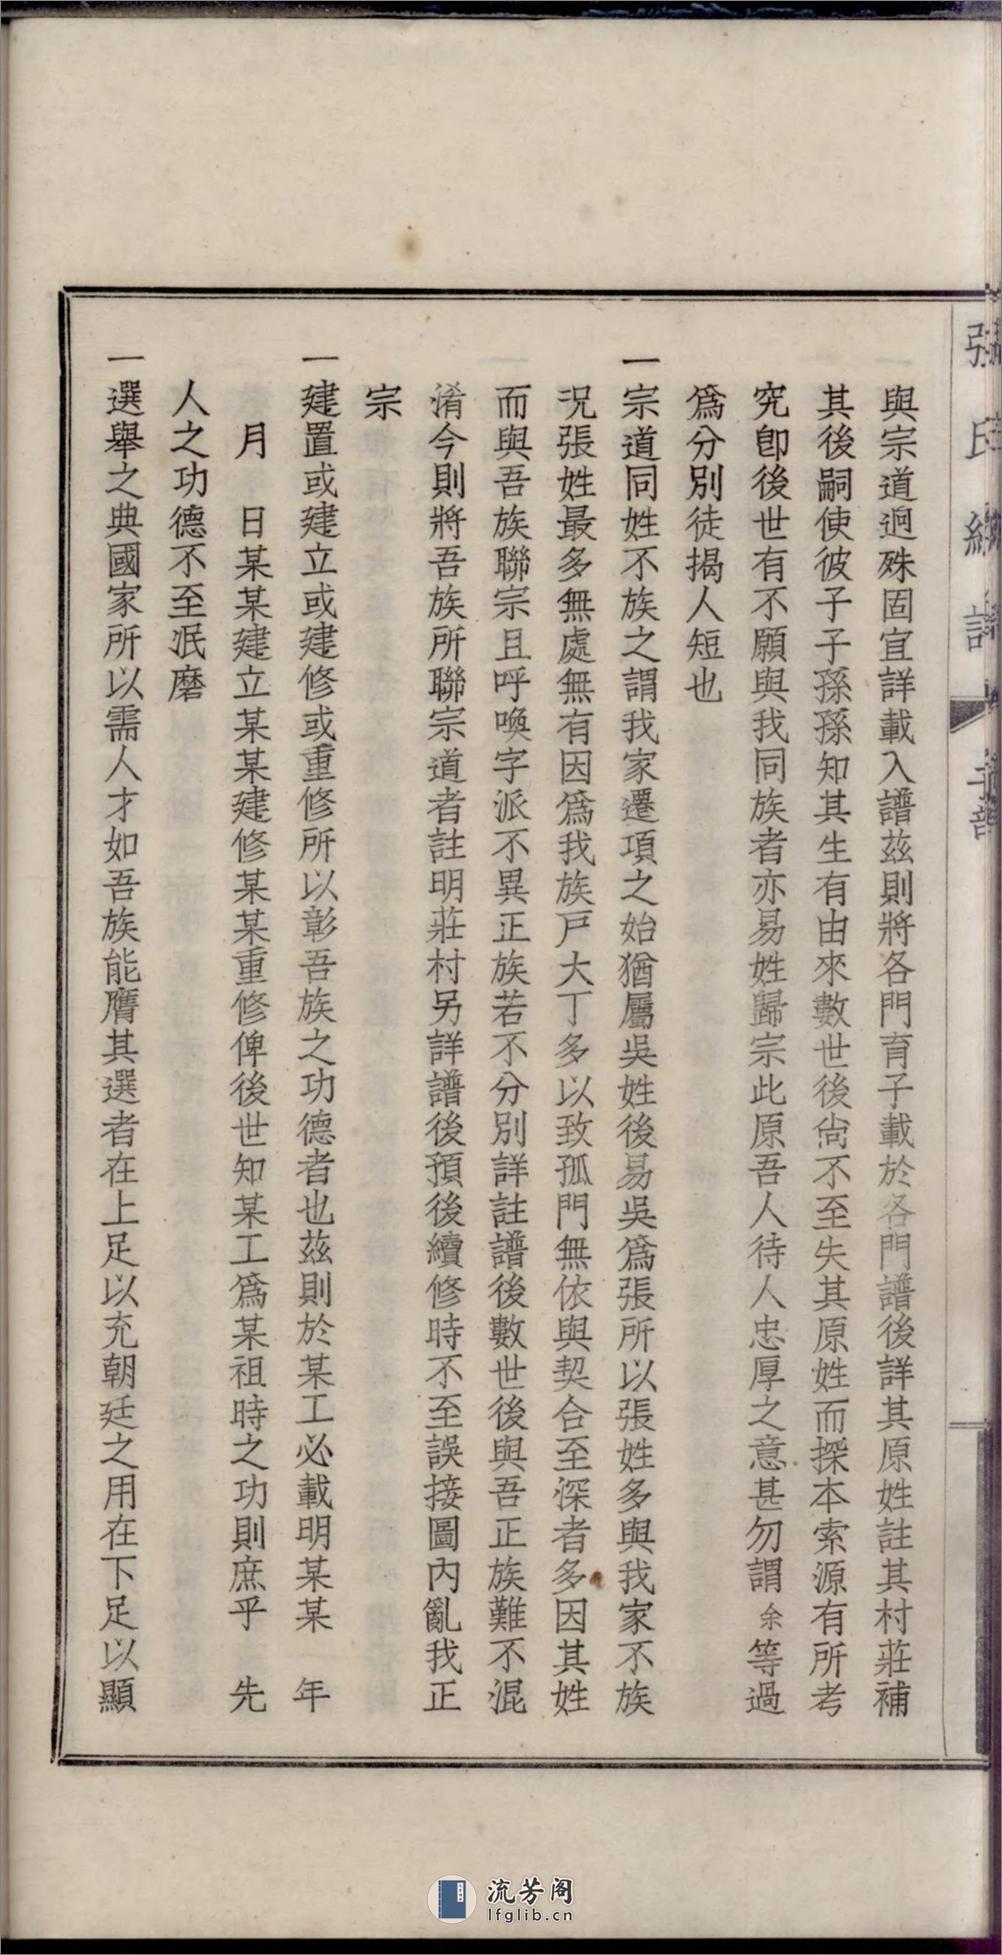 與宗道迥殊固宜詳載入譜茲則將各門育子載於各門譜後詳其原姓註其村莊補
其後嗣使彼子子孫孫知其生有由來數世後尙不至失其原姓而探本索源有所考
究卽後世有不願與我同族者亦易姓歸宗此原吾人待人忠厚之意甚勿謂余等過
爲分別徒揭人短也
一宗道同姓不族之謂我家遷項之始猶屬吳姓後易吳爲張所以張姓多與我家不族
况張姓最多無處無有因爲我族戶大丁多以致孤門無依與契合至深者多因其姓
而與吾族聯宗且呼喚字派不異正族若不分別詳註譜後數世後與吾正族難不混
淆今則將吾族所聯宗道者註明莊村另詳譜後預後續修時不至誤接圖內亂我正
宗
一建置或建立或建修或重修所以彰吾族之功德者也茲則於某工必載明某某　年
　月　日某某建立某某建修某某重修俾後世知某工爲某祖時之功則庶乎　先
人之功德不至泯磨
一選舉之典國家所以需人才如吾族能膺其選者在上足以充朝廷之用在下足以顯
流芳阁
lfglib.cn